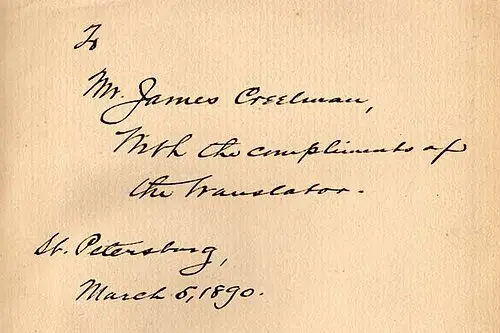 To
Mr. James Creelman,
With the compliments of
the translator.
St. Petersburg,
March 5, 1890.